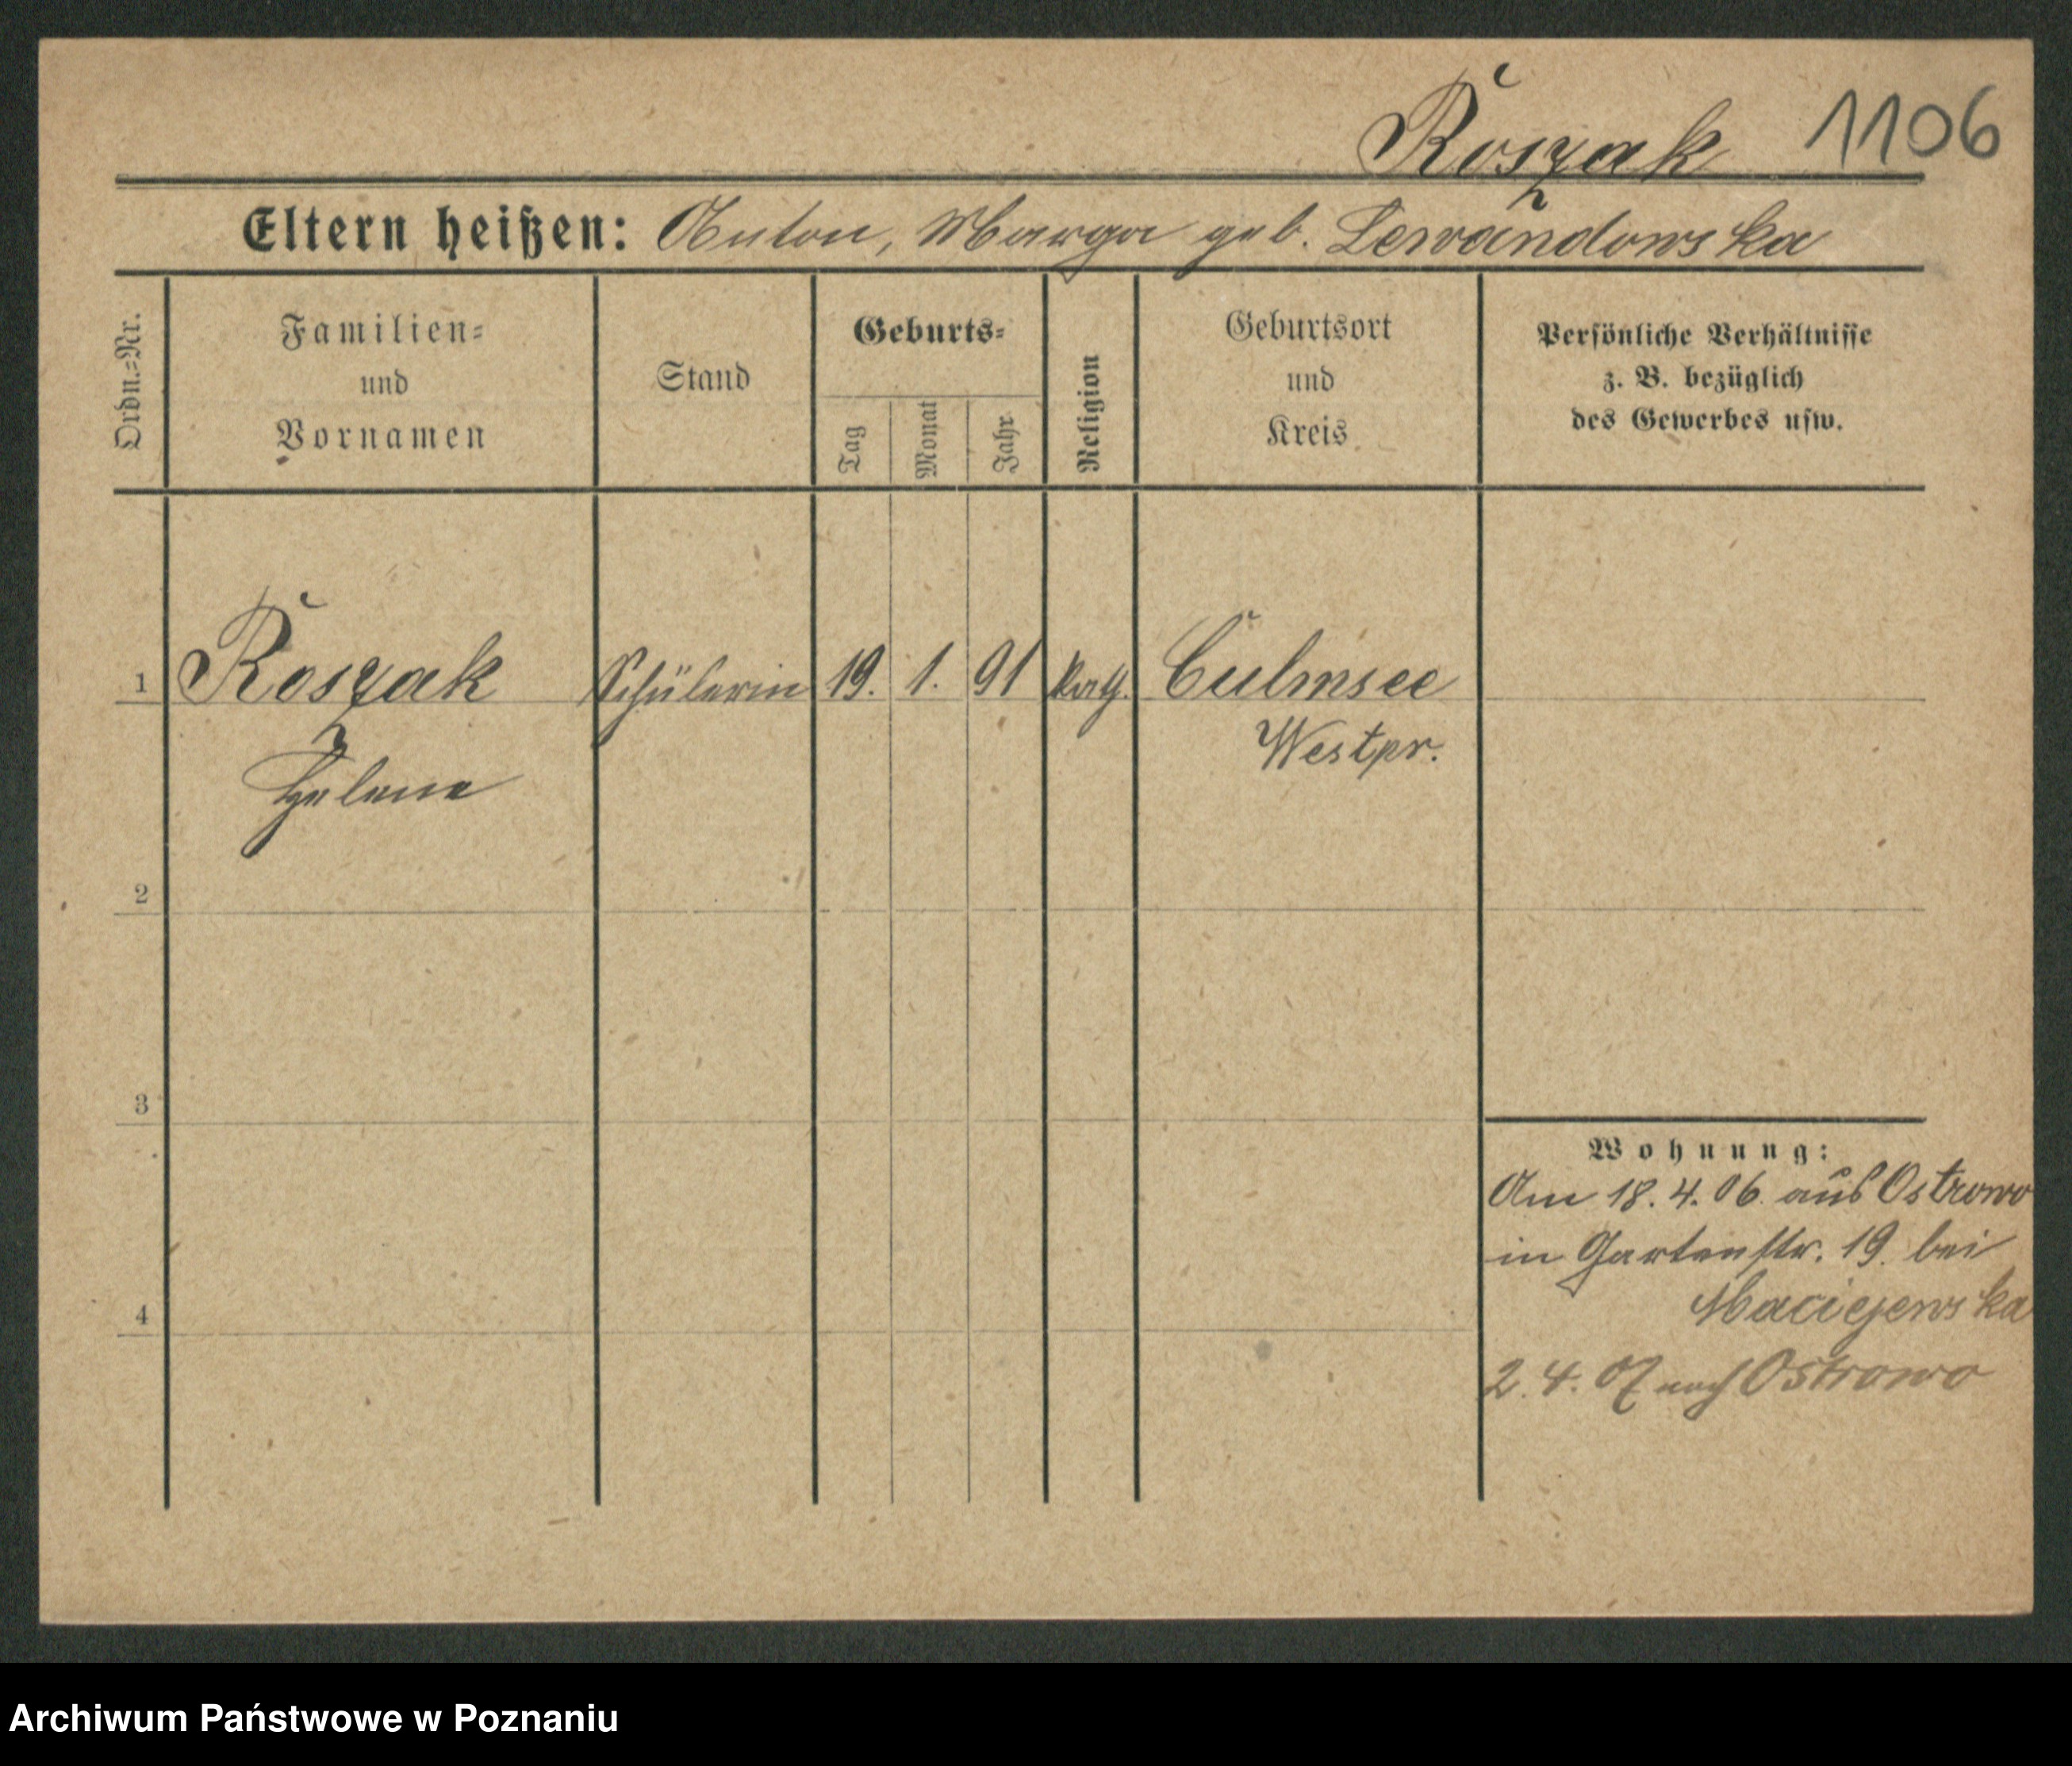 Roszak 1106
Eltern heißen: Anton, Marga geb. Lewandowska
Ordn.=Nr.
Familien=
und
Vornamen
Stand
Geburts=
Tag
Monat
Jahr
Religion
Geburtsort
und
Kreis
Persönliche Verhältnisse
z. B. bezüglich
des Gewerbes usw.
1 Roszak Schülerin 19. 1. 91 kath. Culmsee
Westpr.
Helene
2
3
Wohnung:
Am 18. 4. 06. aus Ostrowo
in Gartenstr. 19. bei
Maciejewska
4
2. 4. 07 nach Ostrowo
Archiwum Państwowe w Poznaniu